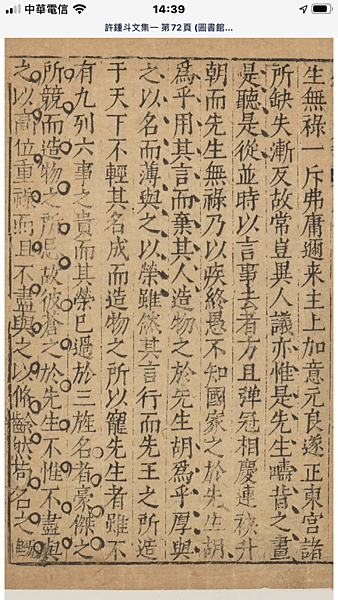 中華電信
14:39
許鍾斗文集一 第72頁 (圖書館...
生無祿一斥弗庸邇来主上加意元良遂正東宮諸
所缺失漸反故常豈異人議亦惟是先生疇昔之畫
是聽是從並時以言事去者方且彈冠相慶連袂升
朝而先生無祿乃以疾終愚不知國家之於先生胡
為乎用其言而棄其人造物之於先生胡為乎厚與
之以名而薄與之以榮雖然其言行而先王之所造
于天下不輕其名成而造物之所以寵先生者雖不
有九列六事之貴而其榮已過於三旌名者豪傑之
所競而造物之所忌故彼蒼之於先生不惟不盡與
之以高位重祿而且不盡與之以脩齡然若名之